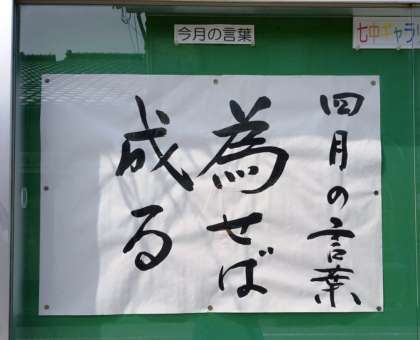 今月の言葉
七中ギャラリ
四月の言葉
為せば
成る